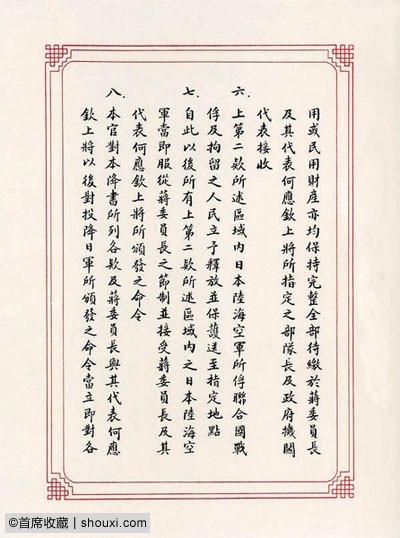 用或民用財產亦均保持完整全部待繳於蔣委員長
及其代表何應欽上將所指定之部隊長及政府機關
代表接收
六、上第二欵所述區域內日本陸海空軍所俘聯合國戰
俘及拘留之人民立予釋放並保護送至指定地點
七、自此以後所有上第二欵所述區域內之日本陸海空
軍當即服從蔣委員長之節制並接受蔣委員長及其
代表何應欽上將所頒發之命令
八、本官對本降書所列各欵及蔣委員長與其代表何應
欽上將以後對投降日軍所頒發之命令當立即對各
@首席收藏 | shouxi.com